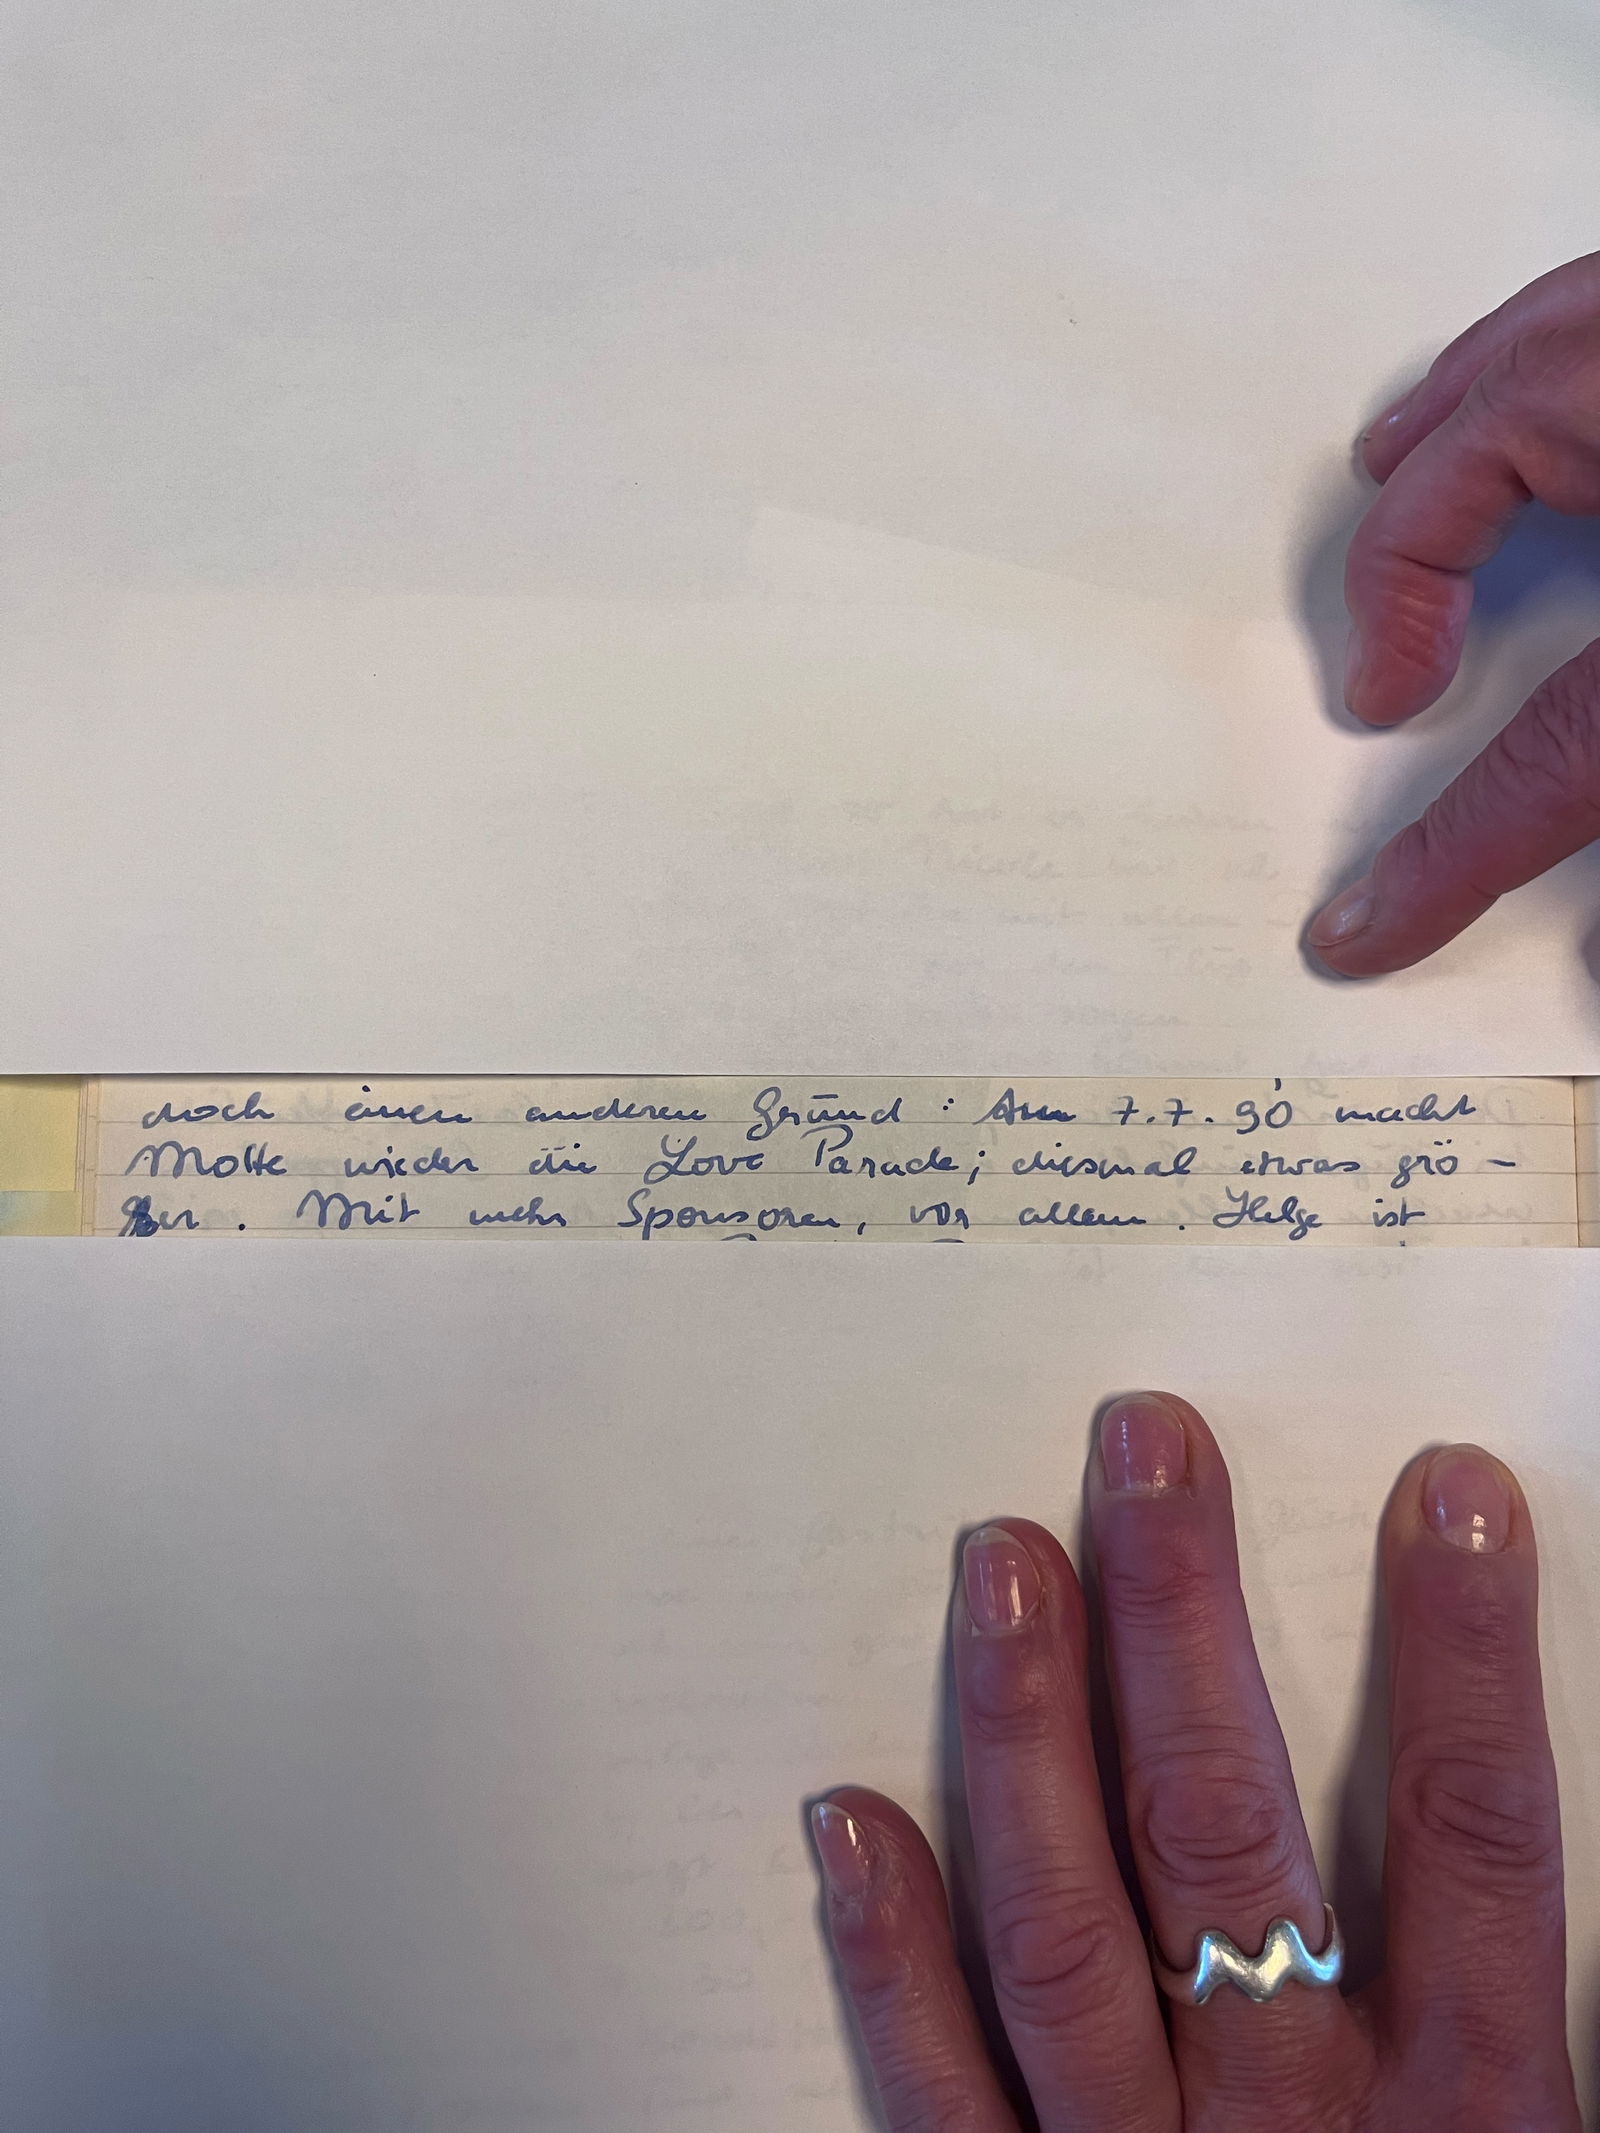 noch einen anderen Grund: Am 7.7.90 macht
Motte wieder die Love Parade; diesmal etwas grö-
ßer. Mit mehr Sponsoren, vor allem. Helge ist